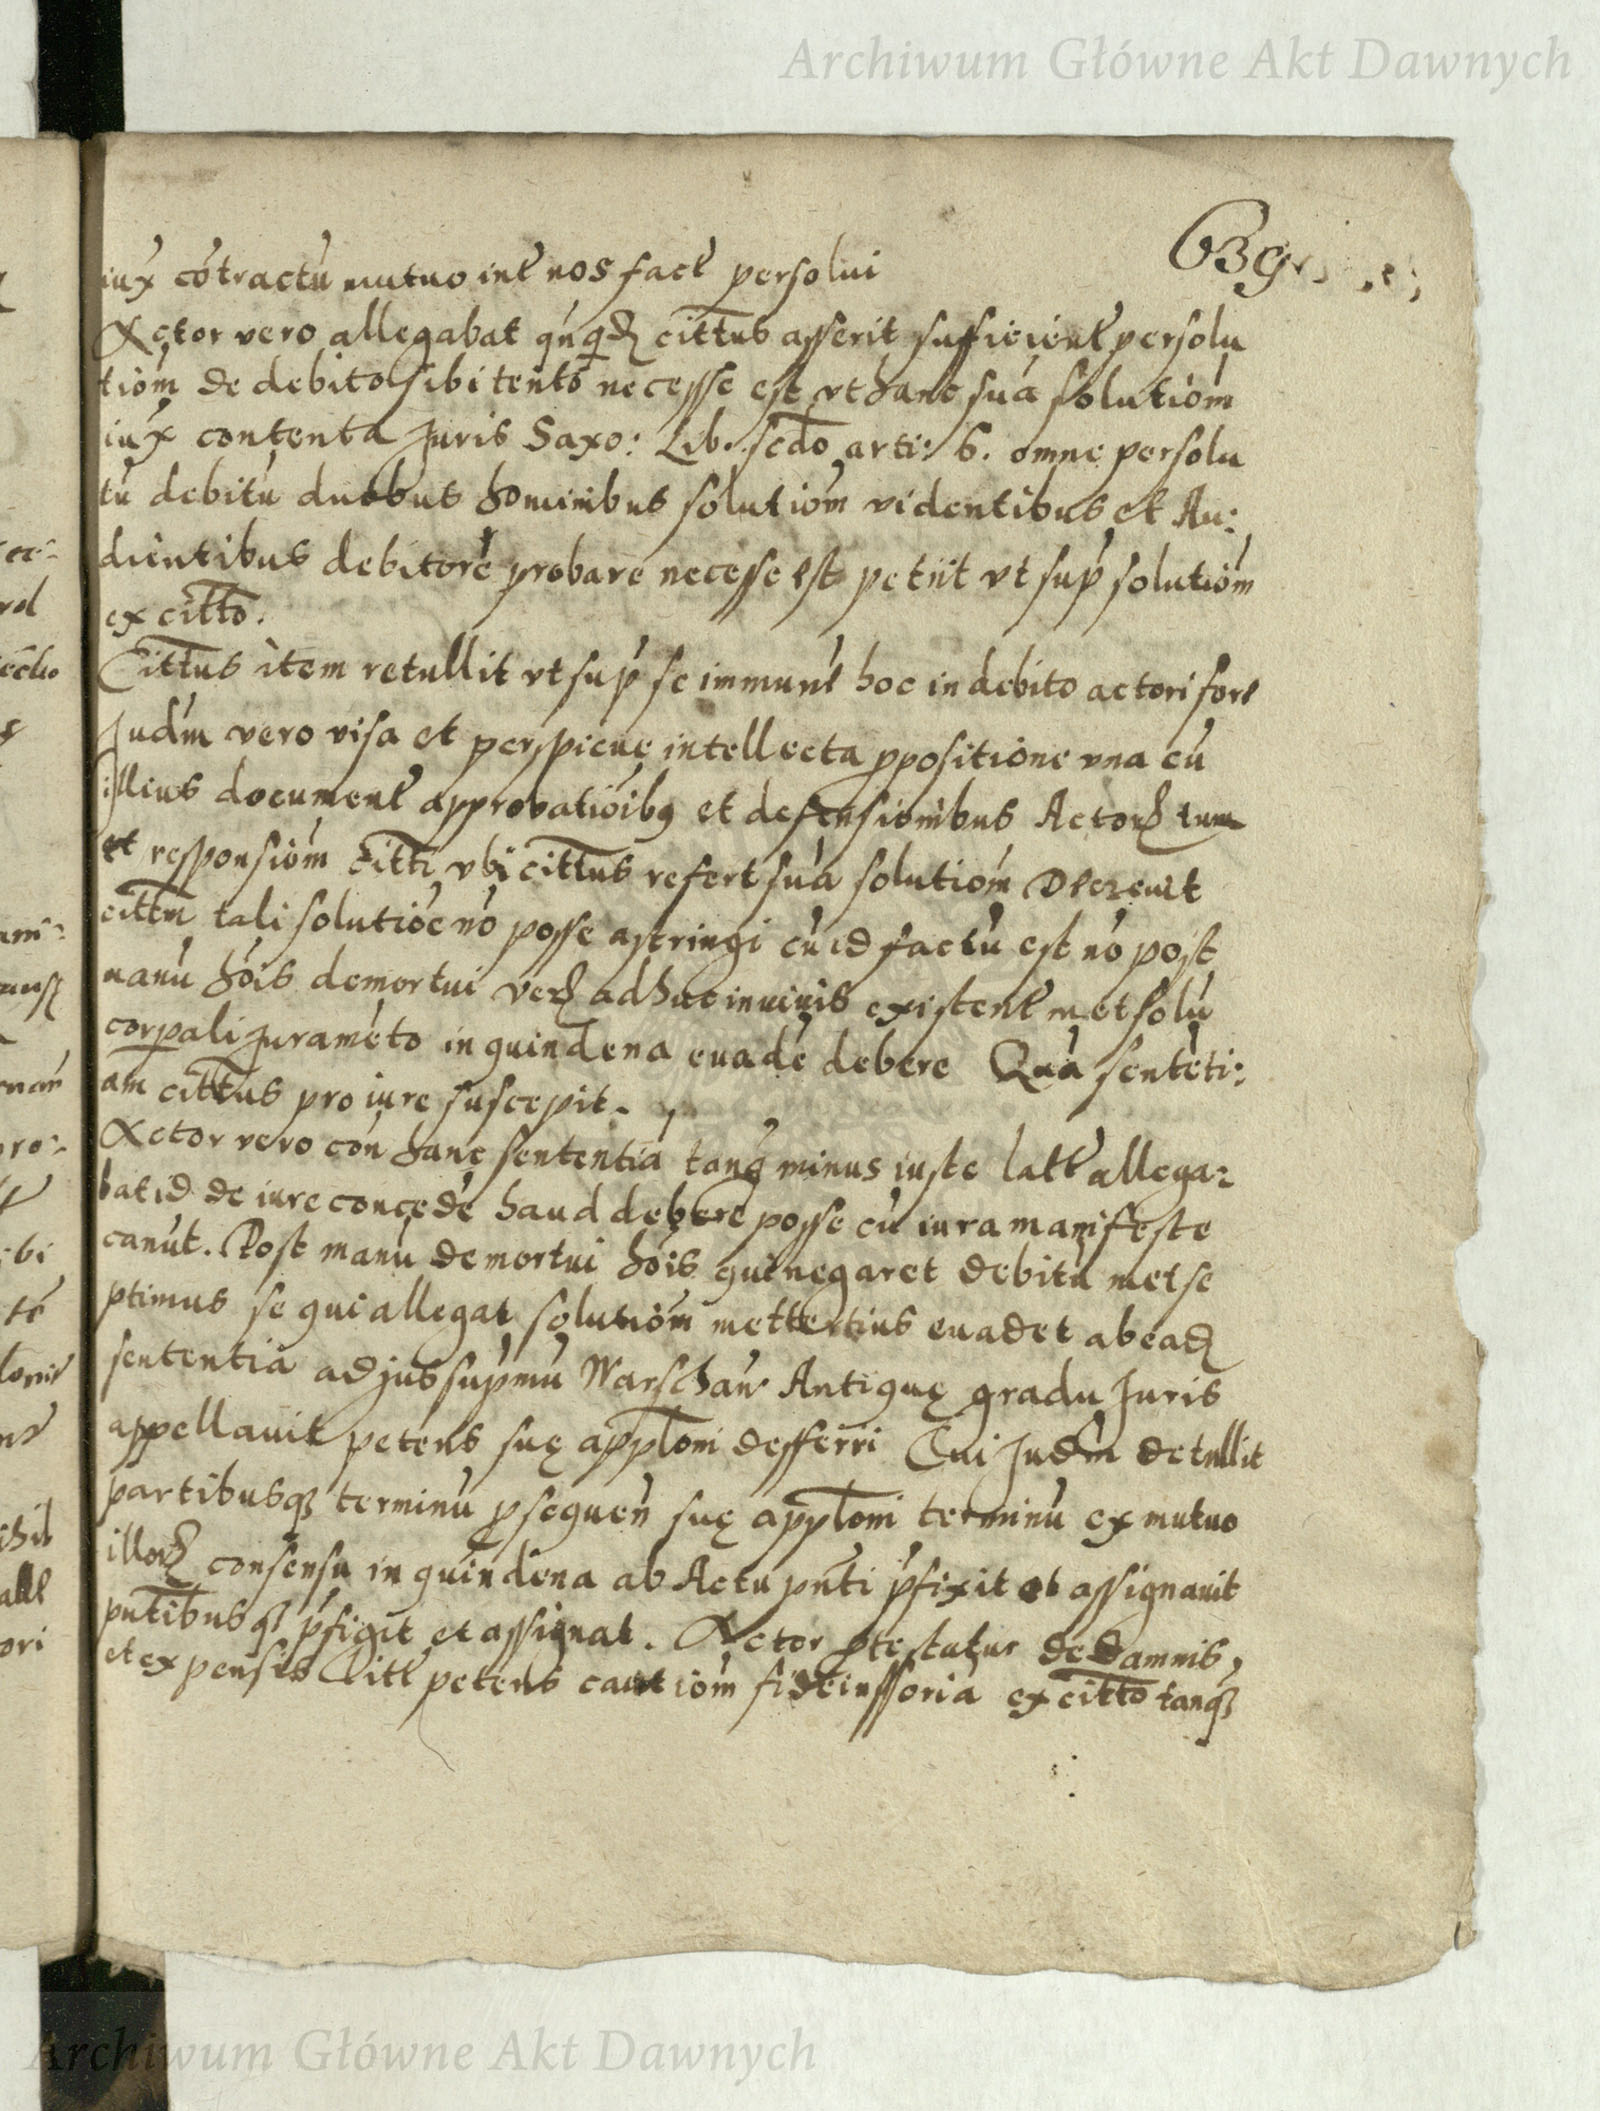 Archiwum Główne Akt Dawnych
639
iux cótractú mutuo int nos fact persolui
Actor vero allegabat cittus asserit suficient persolu
tióm de debito sibi tento necesse est vt hanc suá solutióm
iux contenta Juris Saxo: Lib. scdo arti: 6. omne persolu
tú debitú duobus hominibus solutióm videntibus et Au:
dientibus debitoré probare necesse est petiit vt sup solutióm
ex citto.
Cittus item retullit vt sup se immunt hoc in debito actori fore
Judm vero visa et perspicuę intellecta ppositione vna cú
illius document approbatioibus et defensionibus Actor tum
et responsióm Citti vbi cittus refert suá solutióm Decreuit
cittm tali solutióe nó posse astringi cú id factú est nó post
manú hóis demortui ver adhuc in viuis existent met solú
corpali Juraméto in quindena euadé debere Quá senteti:
am cittus pro iure suscepit.
Actor vero con hanc sententiá tanq minus iuste latt allega:
bat id de iure concedé haud debere posse cú iura manifeste
canút. Post manú demortui hóis qui negaret debitú met se
ptimus se qui allegat solutióm mettertius euadet ab ead
sententia ad Jus supmú Warschau Antiquę gradu Juris
appellauit petens suę applóni defferri Cui Judm detullit
partibusq terminú pseguen suę applóni terminú ex mutuo
illor consensu in quindena ab Actu pnti pfixit et assignauit
pntibusq pfigit et assignat. Actor ptestatur de damnis
et expensis Citt petens cautióm fideiussoria ex citto tanq
Archiwum Główne Akt Dawnych